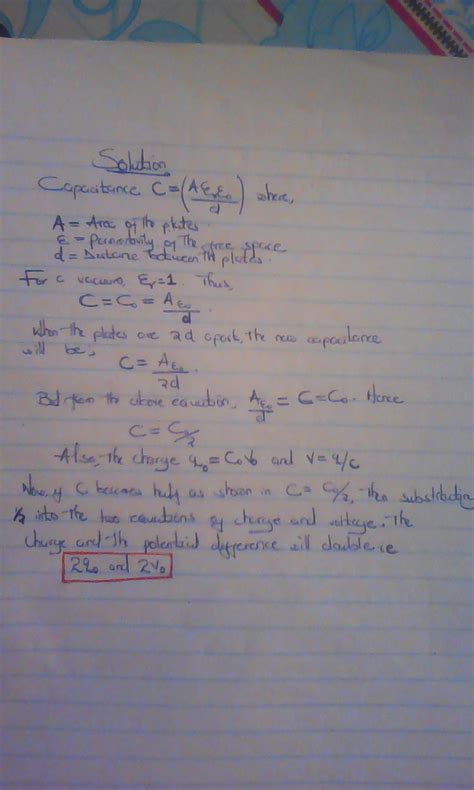 Solution
Capacitance C = (Aεrε0/d) where,
A = Area of the plates.
ε = permittivity of the free space
d = Distance between the plates.
For a vacuum, εr = 1. Thus,
C = C0 = Aε0/d.
When the plates are 2d apart, the new capacitance
will be,
C = Aε0/2d.
But from the above equation, Aε0/d = C = C0. Hence
C = C0/2
Also, the charge q0 = C0V0 and V = q/C
Now, if C becomes half as shown in C = C0/2, then substituting
1/2 into the two equations of charge and voltage. The
charge and the potential difference will double i.e
2q0 and 2V0